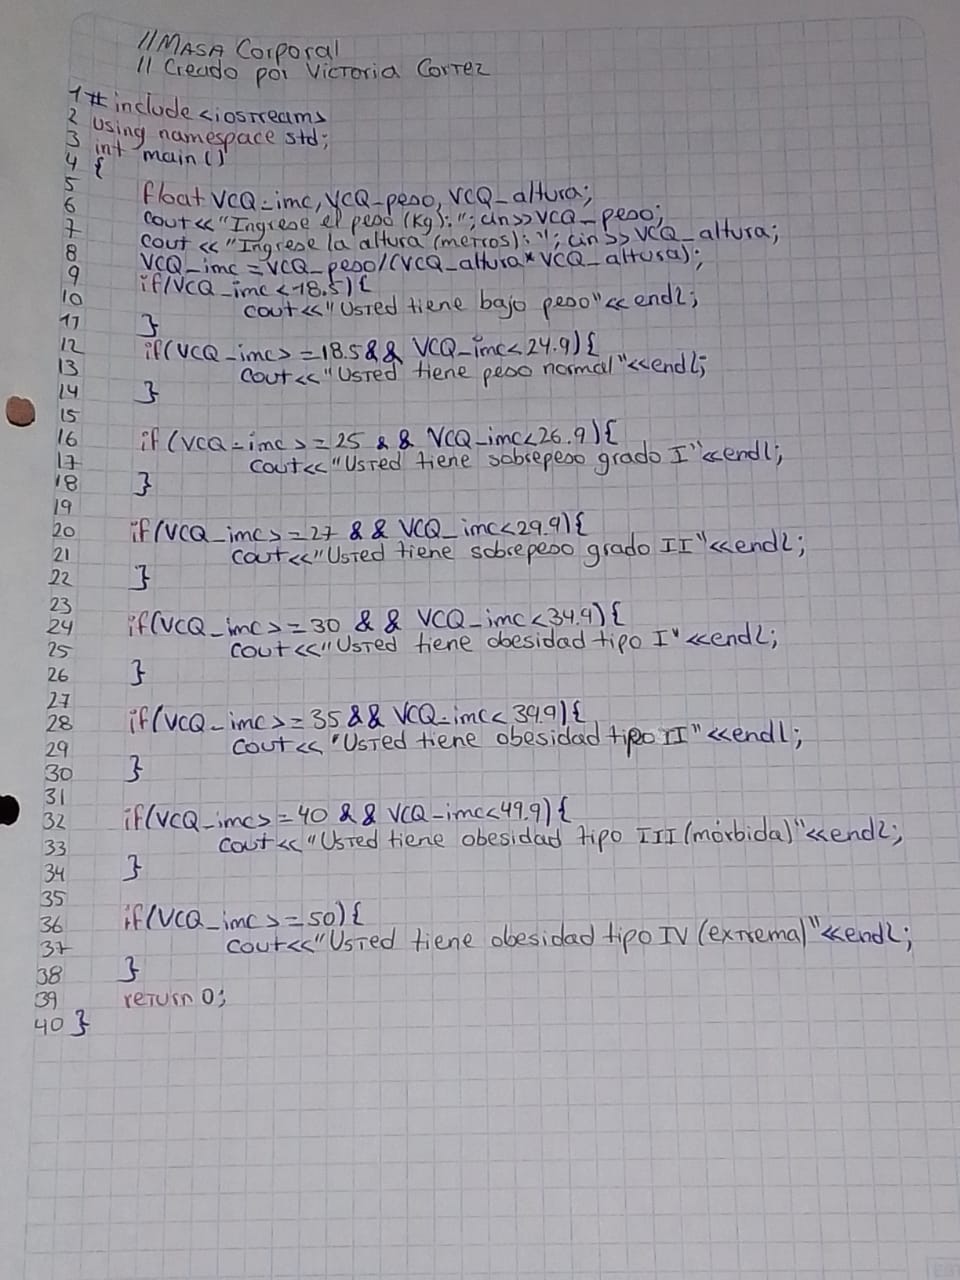 //MASA Corporal
// Creado por Victoria Cortez
1 #include <iostream>
2 using namespace std;
3 int main()
4 {
5
6 float VCQ_imc, VCQ_peso, VCQ_altura;
7 cout<<"Ingrese el peso (Kg):"; cin>>VCQ_peso;
8 cout<<"Ingrese la altura (metros):"; cin>>VCQ_altura;
9 VCQ_imc=VCQ_peso/(VCQ_altura*VCQ_altura);
10 if(VCQ_imc<18.5){
11 cout<<"Usted tiene bajo peso"<<endl;
12 }
13 if(VCQ_imc>=18.5&& VCQ_imc<24.9){
14 cout<<"Usted tiene peso normal"<<endl;
15 }
16 if(VCQ_imc>=25 && VCQ_imc<26.9){
17 cout<<"Usted tiene sobrepeso grado I"<<endl;
18 }
19
20 if(VCQ_imc>=27 && VCQ_imc<29.9){
21 cout<<"Usted tiene sobrepeso grado II"<<endl;
22 }
23
24 if(VCQ_imc>=30 && VCQ_imc<34.9){
25 cout<<"Usted tiene obesidad tipo I"<<endl;
26 }
27
28 if(VCQ_imc>=35&& VCQ_imc<39.9){
29 cout<<"Usted tiene obesidad tipo II"<<endl;
30 }
31
32 if(VCQ_imc>=40 && VCQ_imc<49.9){
33 cout<<"Usted tiene obesidad tipo III (mórbida)"<<endl;
34 }
35
36 if(VCQ_imc>=50){
37 cout<<"Usted tiene obesidad tipo IV (extrema)"<<endl;
38 }
39 return 0;
40 }